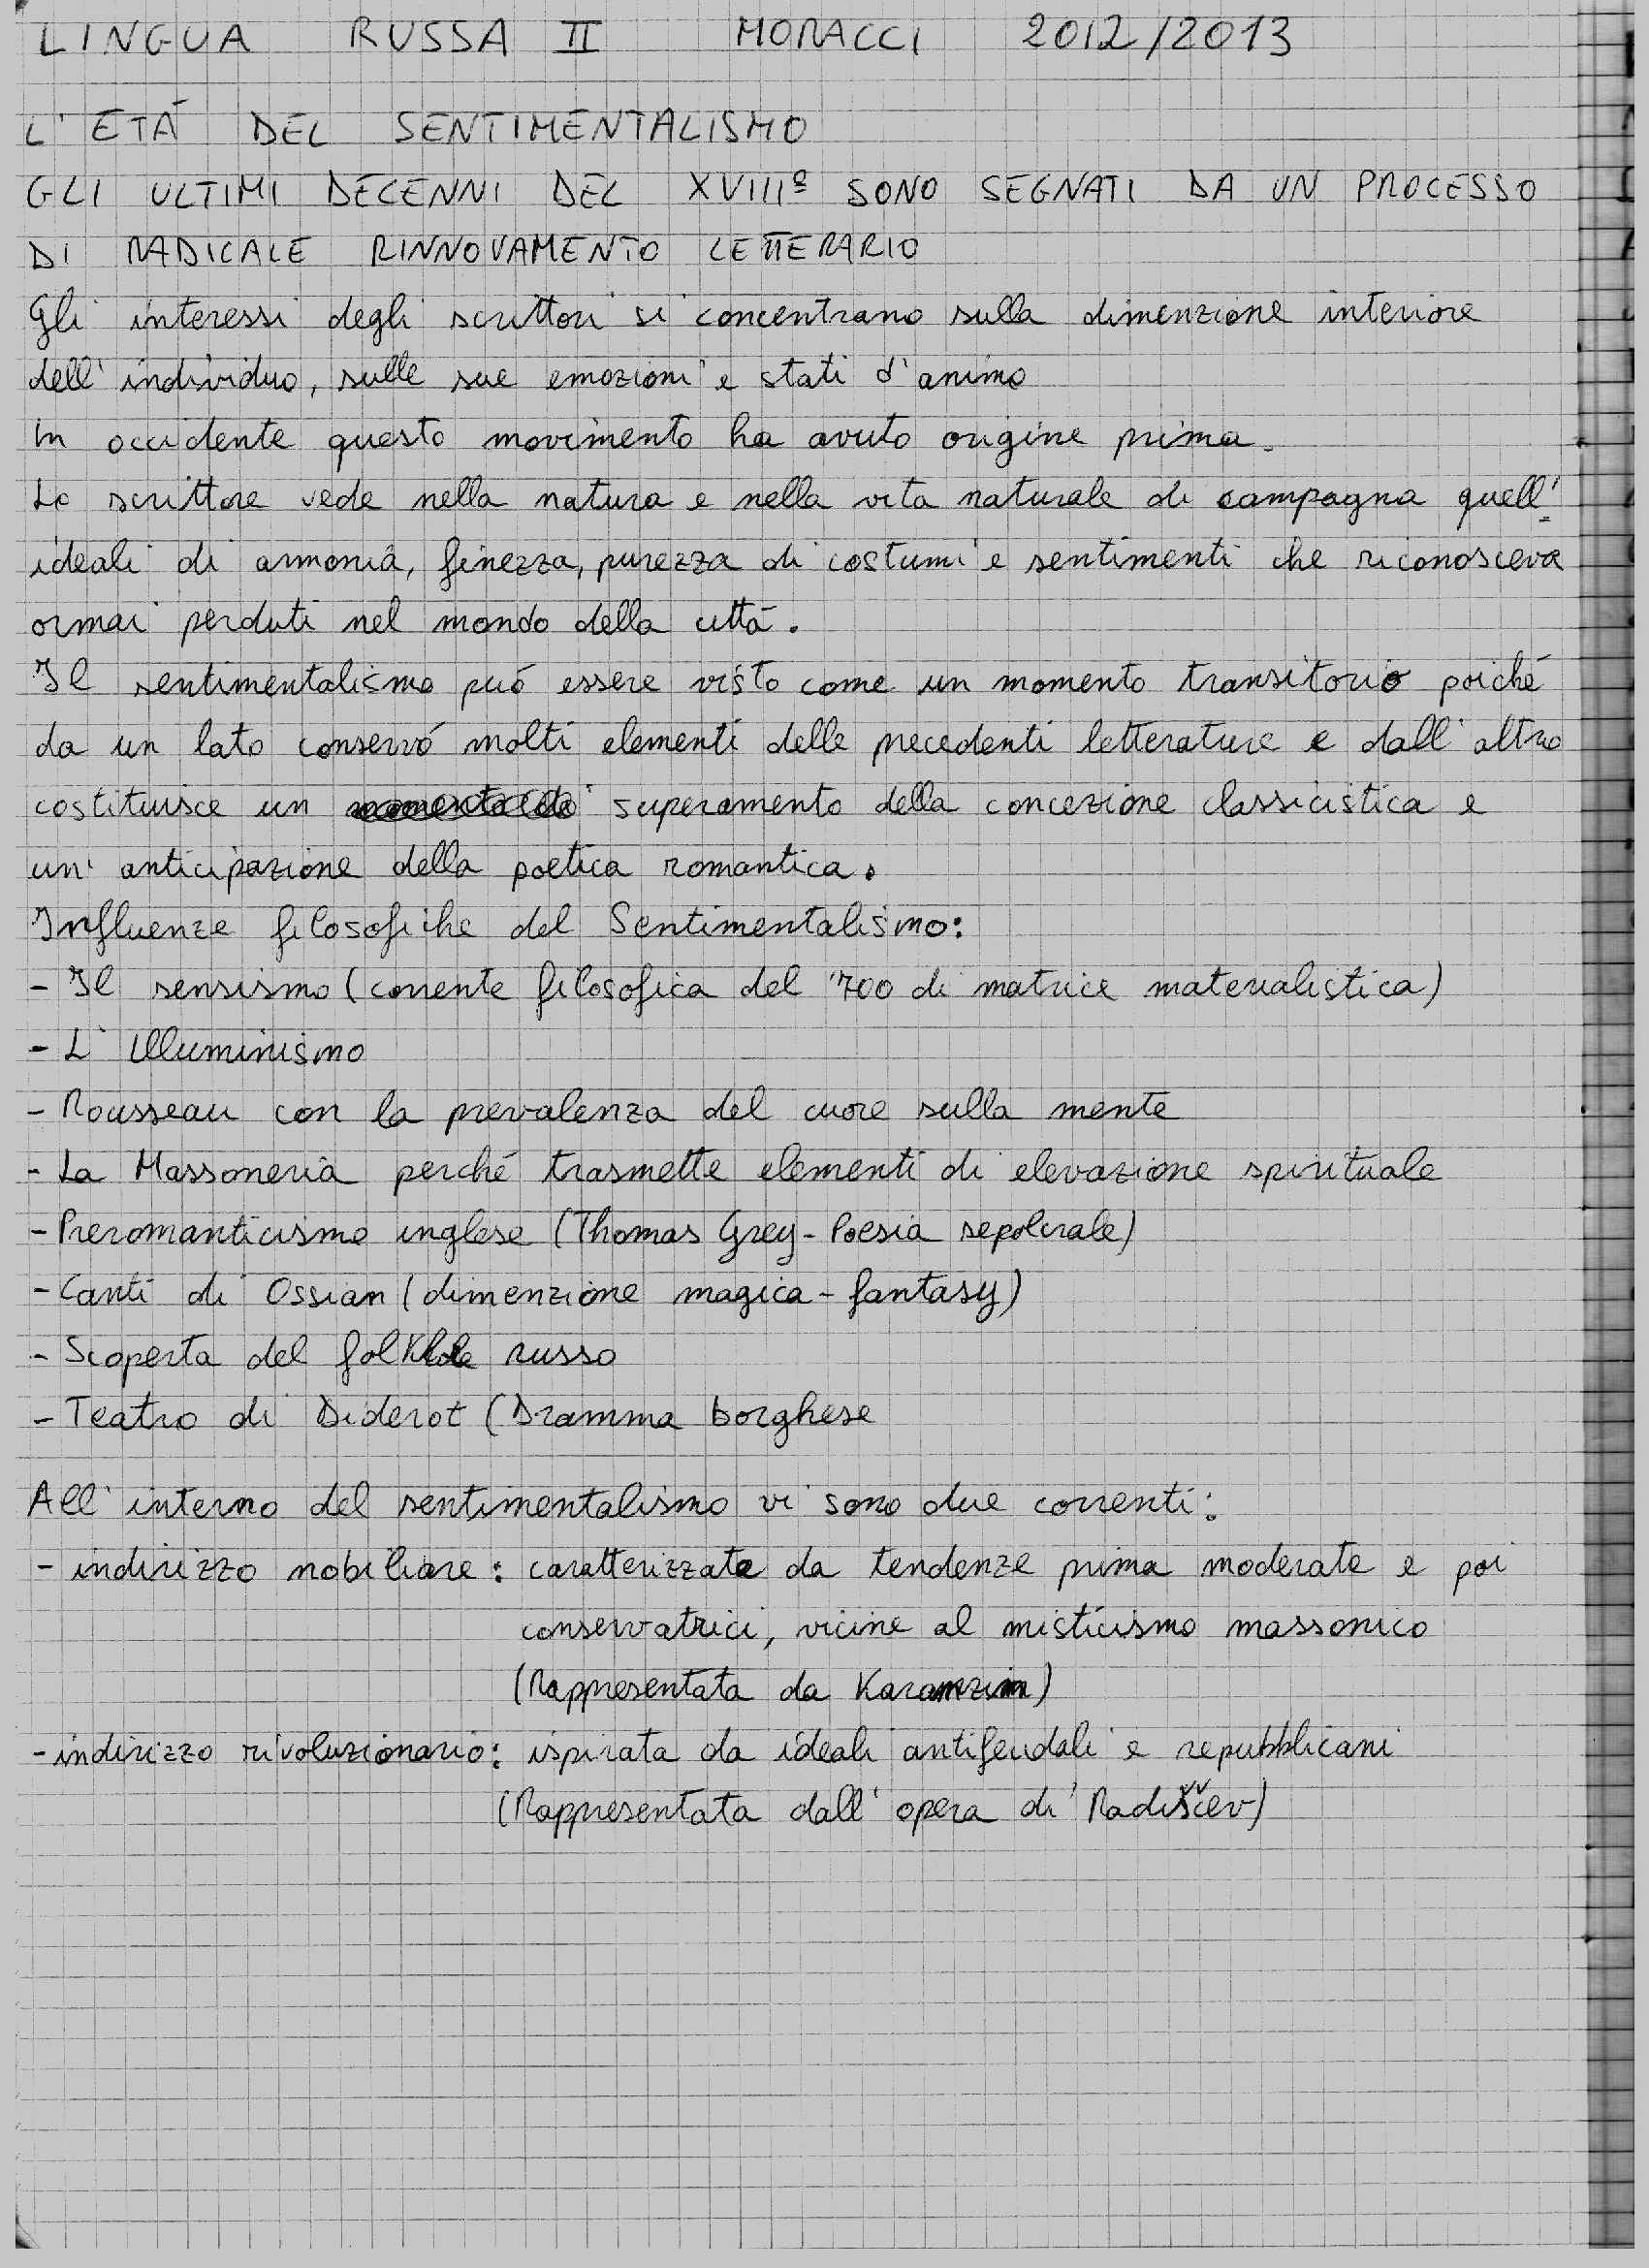 LINGUA RUSSA II MORACCI 2012/2013
L'ETÁ DEL SENTIMENTALISMO
GLI ULTIMI DECENNI DEL XVIIIº SONO SEGNATI DA UN PROCESSO
DI RADICALE RINNOVAMENTO LETTERARIO
Gli interessi degli scrittori si concentrano sulla dimenzione interiore
dell'individuo, sulle sue emozioni e stati d'animo
In occidente questo movimento ha avuto origine prima.
Lo scrittore vede nella natura e nella vita naturale di campagna quell'
ideali di armonia, finezza, purezza di costumi e sentimenti che riconosceva
ormai perduti nel mondo della cittá.
Il sentimentalismo puó essere visto come un momento transitorio poiché
da un lato conservó molti elementi delle precedenti letterature e dall'altro
costituisce un superamento della concezione classicistica e
un'anticipazione della poetica romantica.
Influenze filosofiche del Sentimentalismo:
- Il sensismo (corrente filosofica del '700 di matrice materialistica)
- L'Illuminismo
- Rousseau con la prevalenza del cuore sulla mente
- La Massoneria perché trasmette elementi di elevazione spirituale
- Preromanticismo inglese (Thomas Grey - Poesia sepolcrale)
- Canti di Ossian (dimenzione magica - fantasy)
- Scoperta del russo
- Teatro di Diderot (Dramma borghese
All'interno del sentimentalismo vi sono due correnti:
- indirizzo nobiliare: caratterizzate da tendenze prima moderate e poi
conservatrici, vicine al misticismo massonico
(Rappresentata da Karamzin)
- indirizzo rivoluzionario: ispirata da ideali antifeudali e repubblicani
(Rappresentata dall'opera di Radiščev)